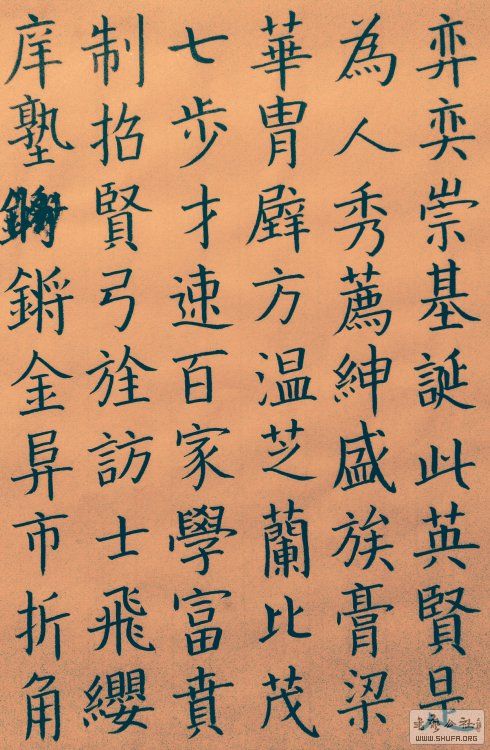 弈奕崇基誕此英賢是
為人秀薦紳盛族膏梁
華胄璧方温芝蘭比茂
七步才速百家學富賁
制招賢弓旌訪士飛纓
庠塾鏘鏘金市折角
书法公社
WWW.SHUFA.ORG